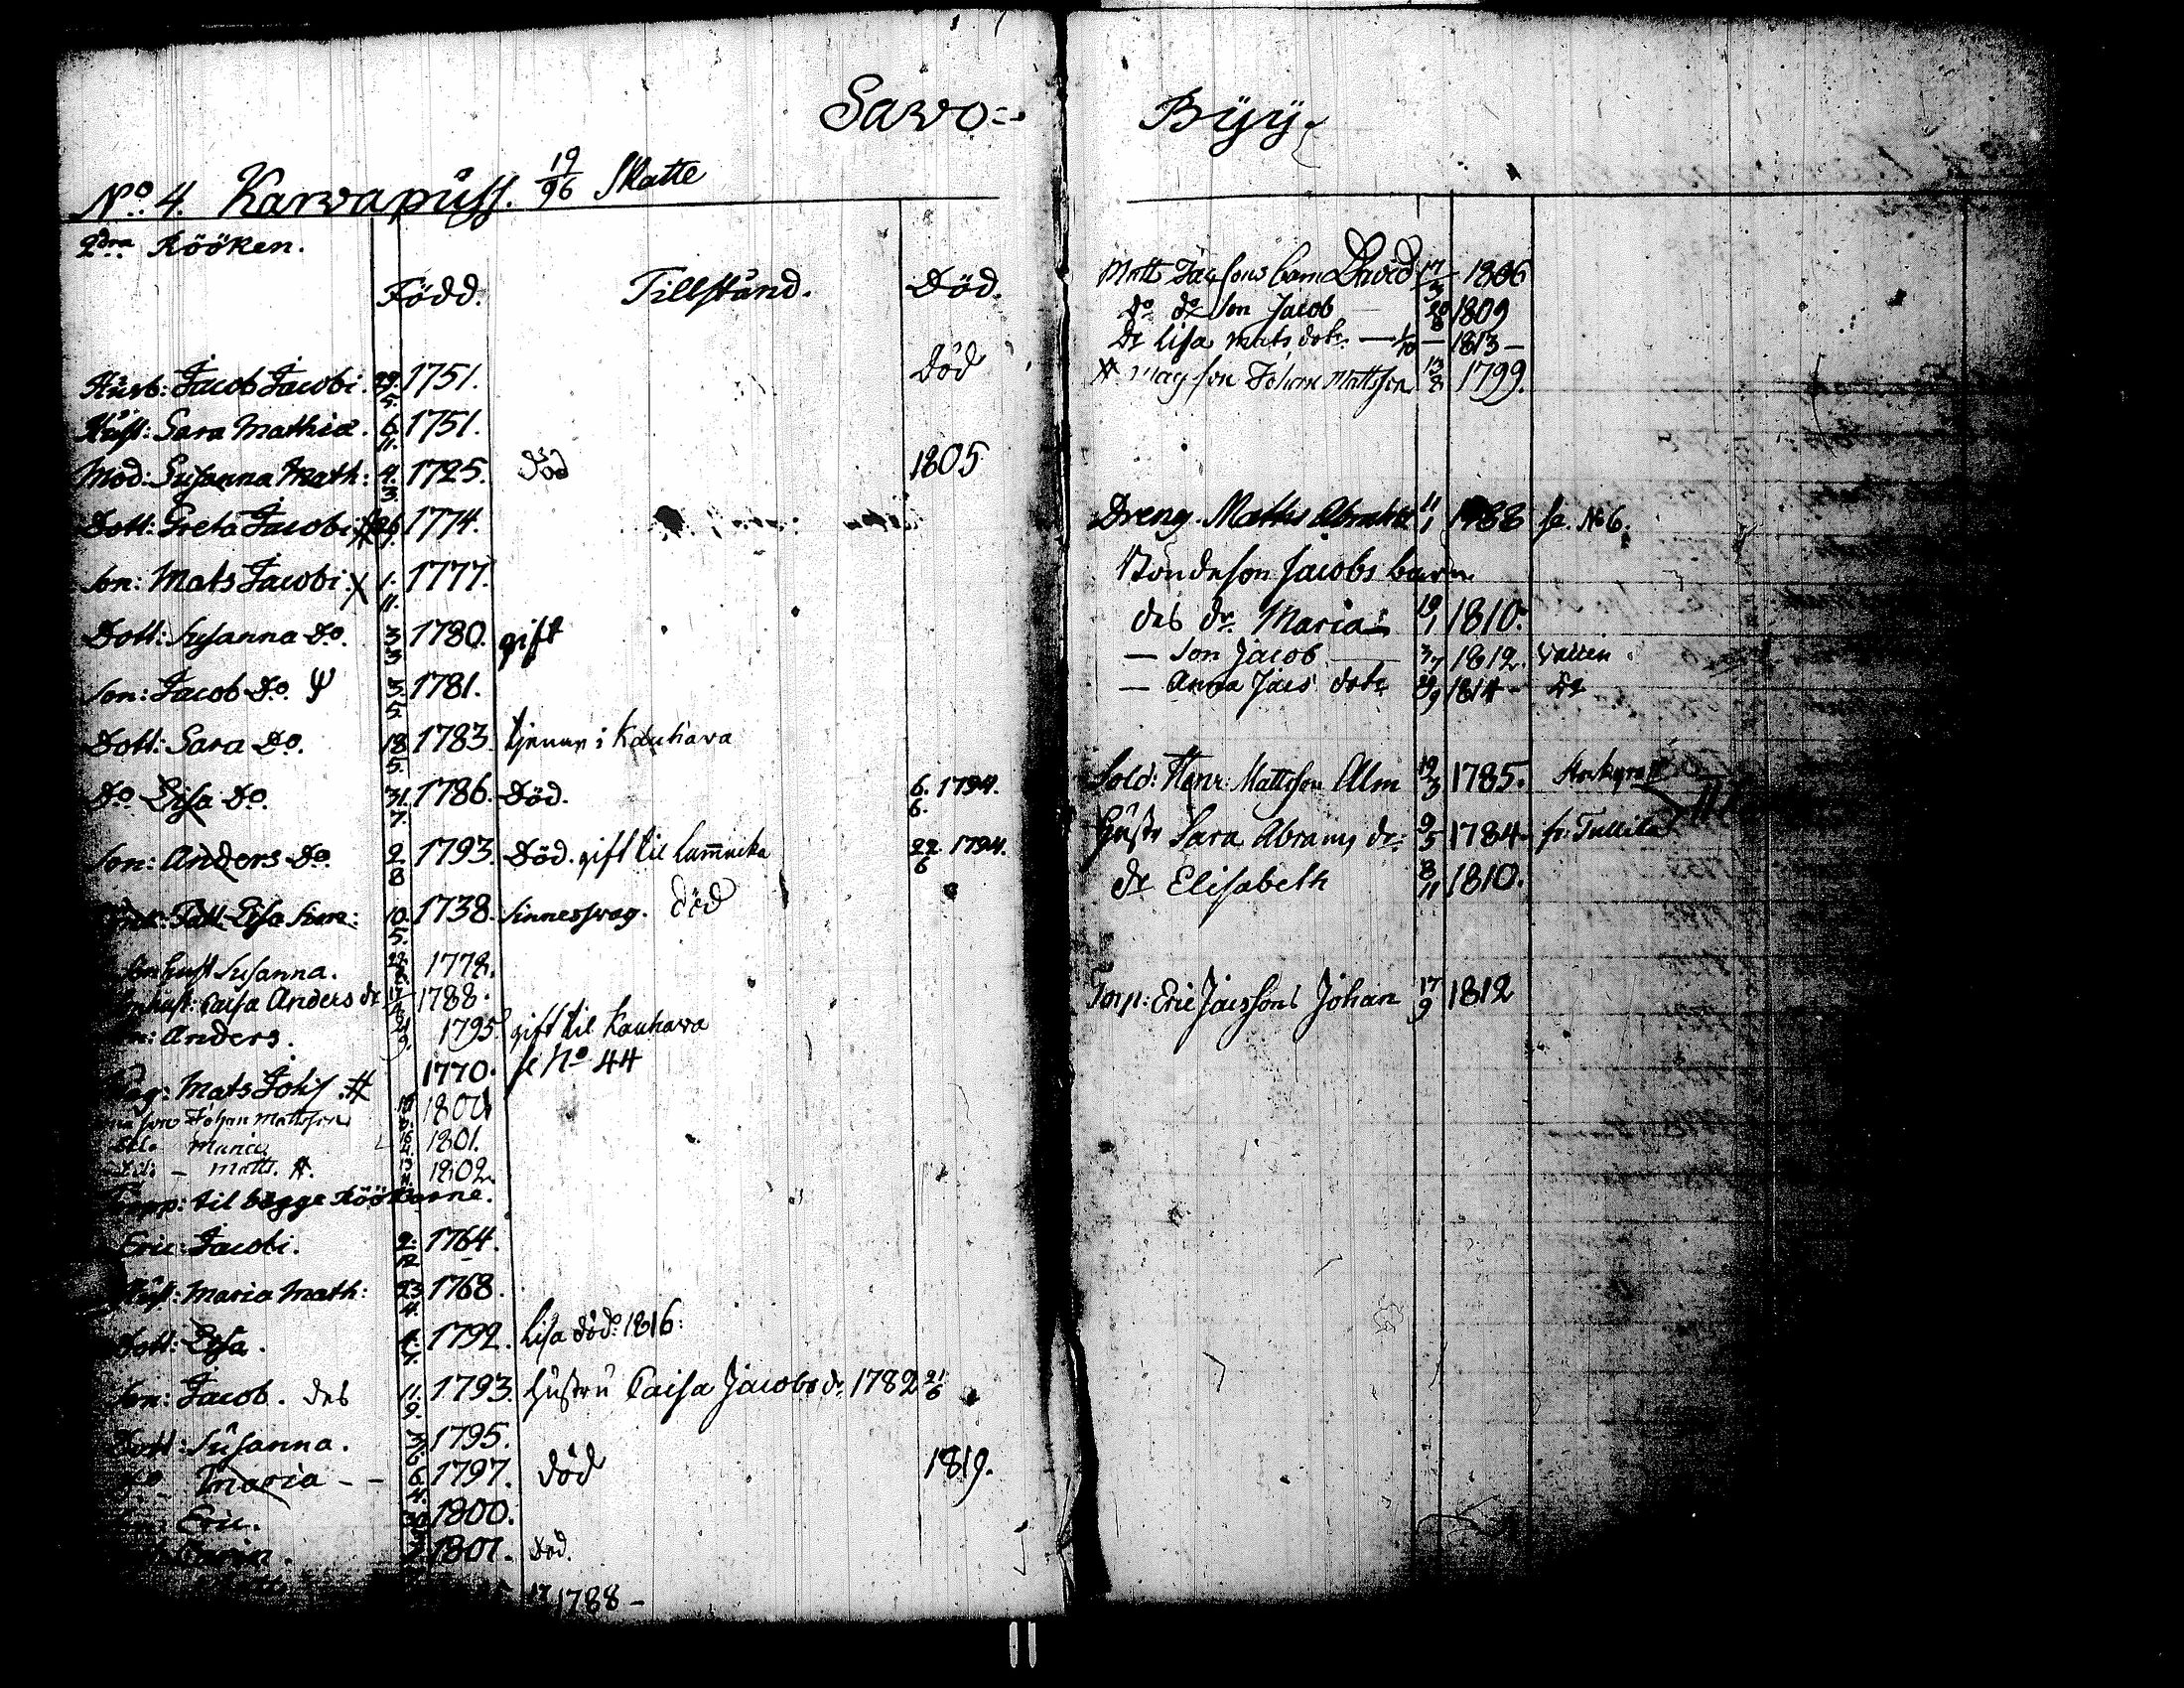 Sawo=
No. 4. Karvapuss. 19/96 Skatte
2dra Rööken.
Född. Tillstånd. Död.
Husb: Jacob Jacobi. 29/5. 1751. Död
Hust: Sara Mathiæ. 6/11. 1751.
Mod: Susanna Math: 4/3. 1725. död 1805
Dott: Greta Jacobi # 1774.
Son: Mats Jacobi. X 1/11. 1777.
Dott: Susanna Do. 3/3 1780. gift
Son: Jacob Do. 5/5 1781.
Dott: Sara Do. 18/5. 1783. tjenar i Kauhava
Do Lisa Do. 31/7. 1786. Död. 6/6. 1794.
Son: Anders Do. 2/8 1793. Död. gift til 22/6 1794.
Lisa Sim: 10/5. 1738. Sinnessvag. död
Sonhust Susanna. 1778.
Caisa Anders dr 1788.
Anders. 1795. gift til Kauhava
Mats Joh #. 1770. se No 44
Johan Mattsson 1800
Maria 1801.
Matts. #. 1802.
til bägge Röökarne.
Eric Jacobi. 2/12 1764.
Hust: Maria Math: 23/4. 1768.
Dott: Lisa. 1792. Lisa död: 1816:
Son: Jacob. des 11/9. 1793. hustru Caisa Jacobs dr. 1782 21/6
Dott: Susanna. 1795.
Do Maria - - 6/4. 1797. död 1819.
Eric. 1800.
1801. död.
1788 -
Byy.
Matts Jacssons barn David 17/3 1806
do do son Jacob 20/8 1809
Dr Lisa Mats dotr — 1/10 — 1813 —
# son Johan Mattsson 13/8 1799.
Dreng. Matts 11/1 1788 se No 6.
Bondeson Jacobs barn
des dr. Maria 19/1 1810.
— son Jacob — 3/7 1812.
— Anna Jacs dotr 1814
Sold: Henr: Mattsson Alm 19/3 1785.
Hustr Sara Abrams dr: 9/5 1784 - fr. Tullila
dr Elisabeth 8/11 1810.
Torp: Eric Jacssons Johan 17/9 1812